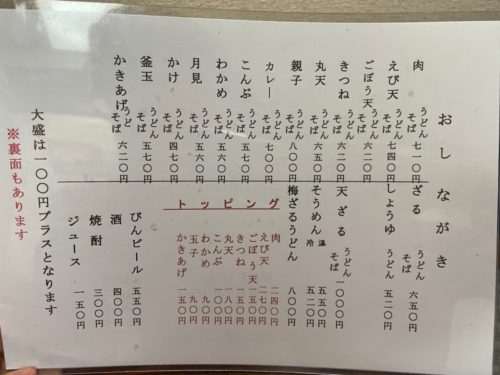 おしながき
肉 うどん そば 七一〇円
えび天 うどん そば 七四〇円
ごぼう天 うどん そば 六二〇円
きつね うどん そば 六二〇円
丸天 うどん そば 六五〇円
親子 うどん そば 八〇〇円
カレー うどん そば 七〇〇円
こんぶ うどん そば 五七〇円
わかめ うどん そば 五六〇円
月見 うどん そば 五六〇円
かけ うどん そば 四七〇円
釜玉 うどん そば 五七〇円
かきあげ うどん そば 六二〇円
ざる うどん そば 六五〇円
しょうゆ うどん 五二〇円
天ざる うどん そば 一〇〇〇円
そうめん 温 五五〇円 冷 五二〇円
梅ざるうどん 八〇〇円
トッピング
肉 二四〇円
えび天 二七〇円
ごぼう天 一五〇円
きつね 一五〇円
丸天 一八〇円
こんぶ 一〇〇円
わかめ 九〇円
玉子 九〇円
かきあげ 一五〇円
びんビール 五五〇円
酒 四〇〇円
焼酎 三〇〇円
ジュース 一五〇円
大盛は一〇〇円プラスとなります
※裏面もあります